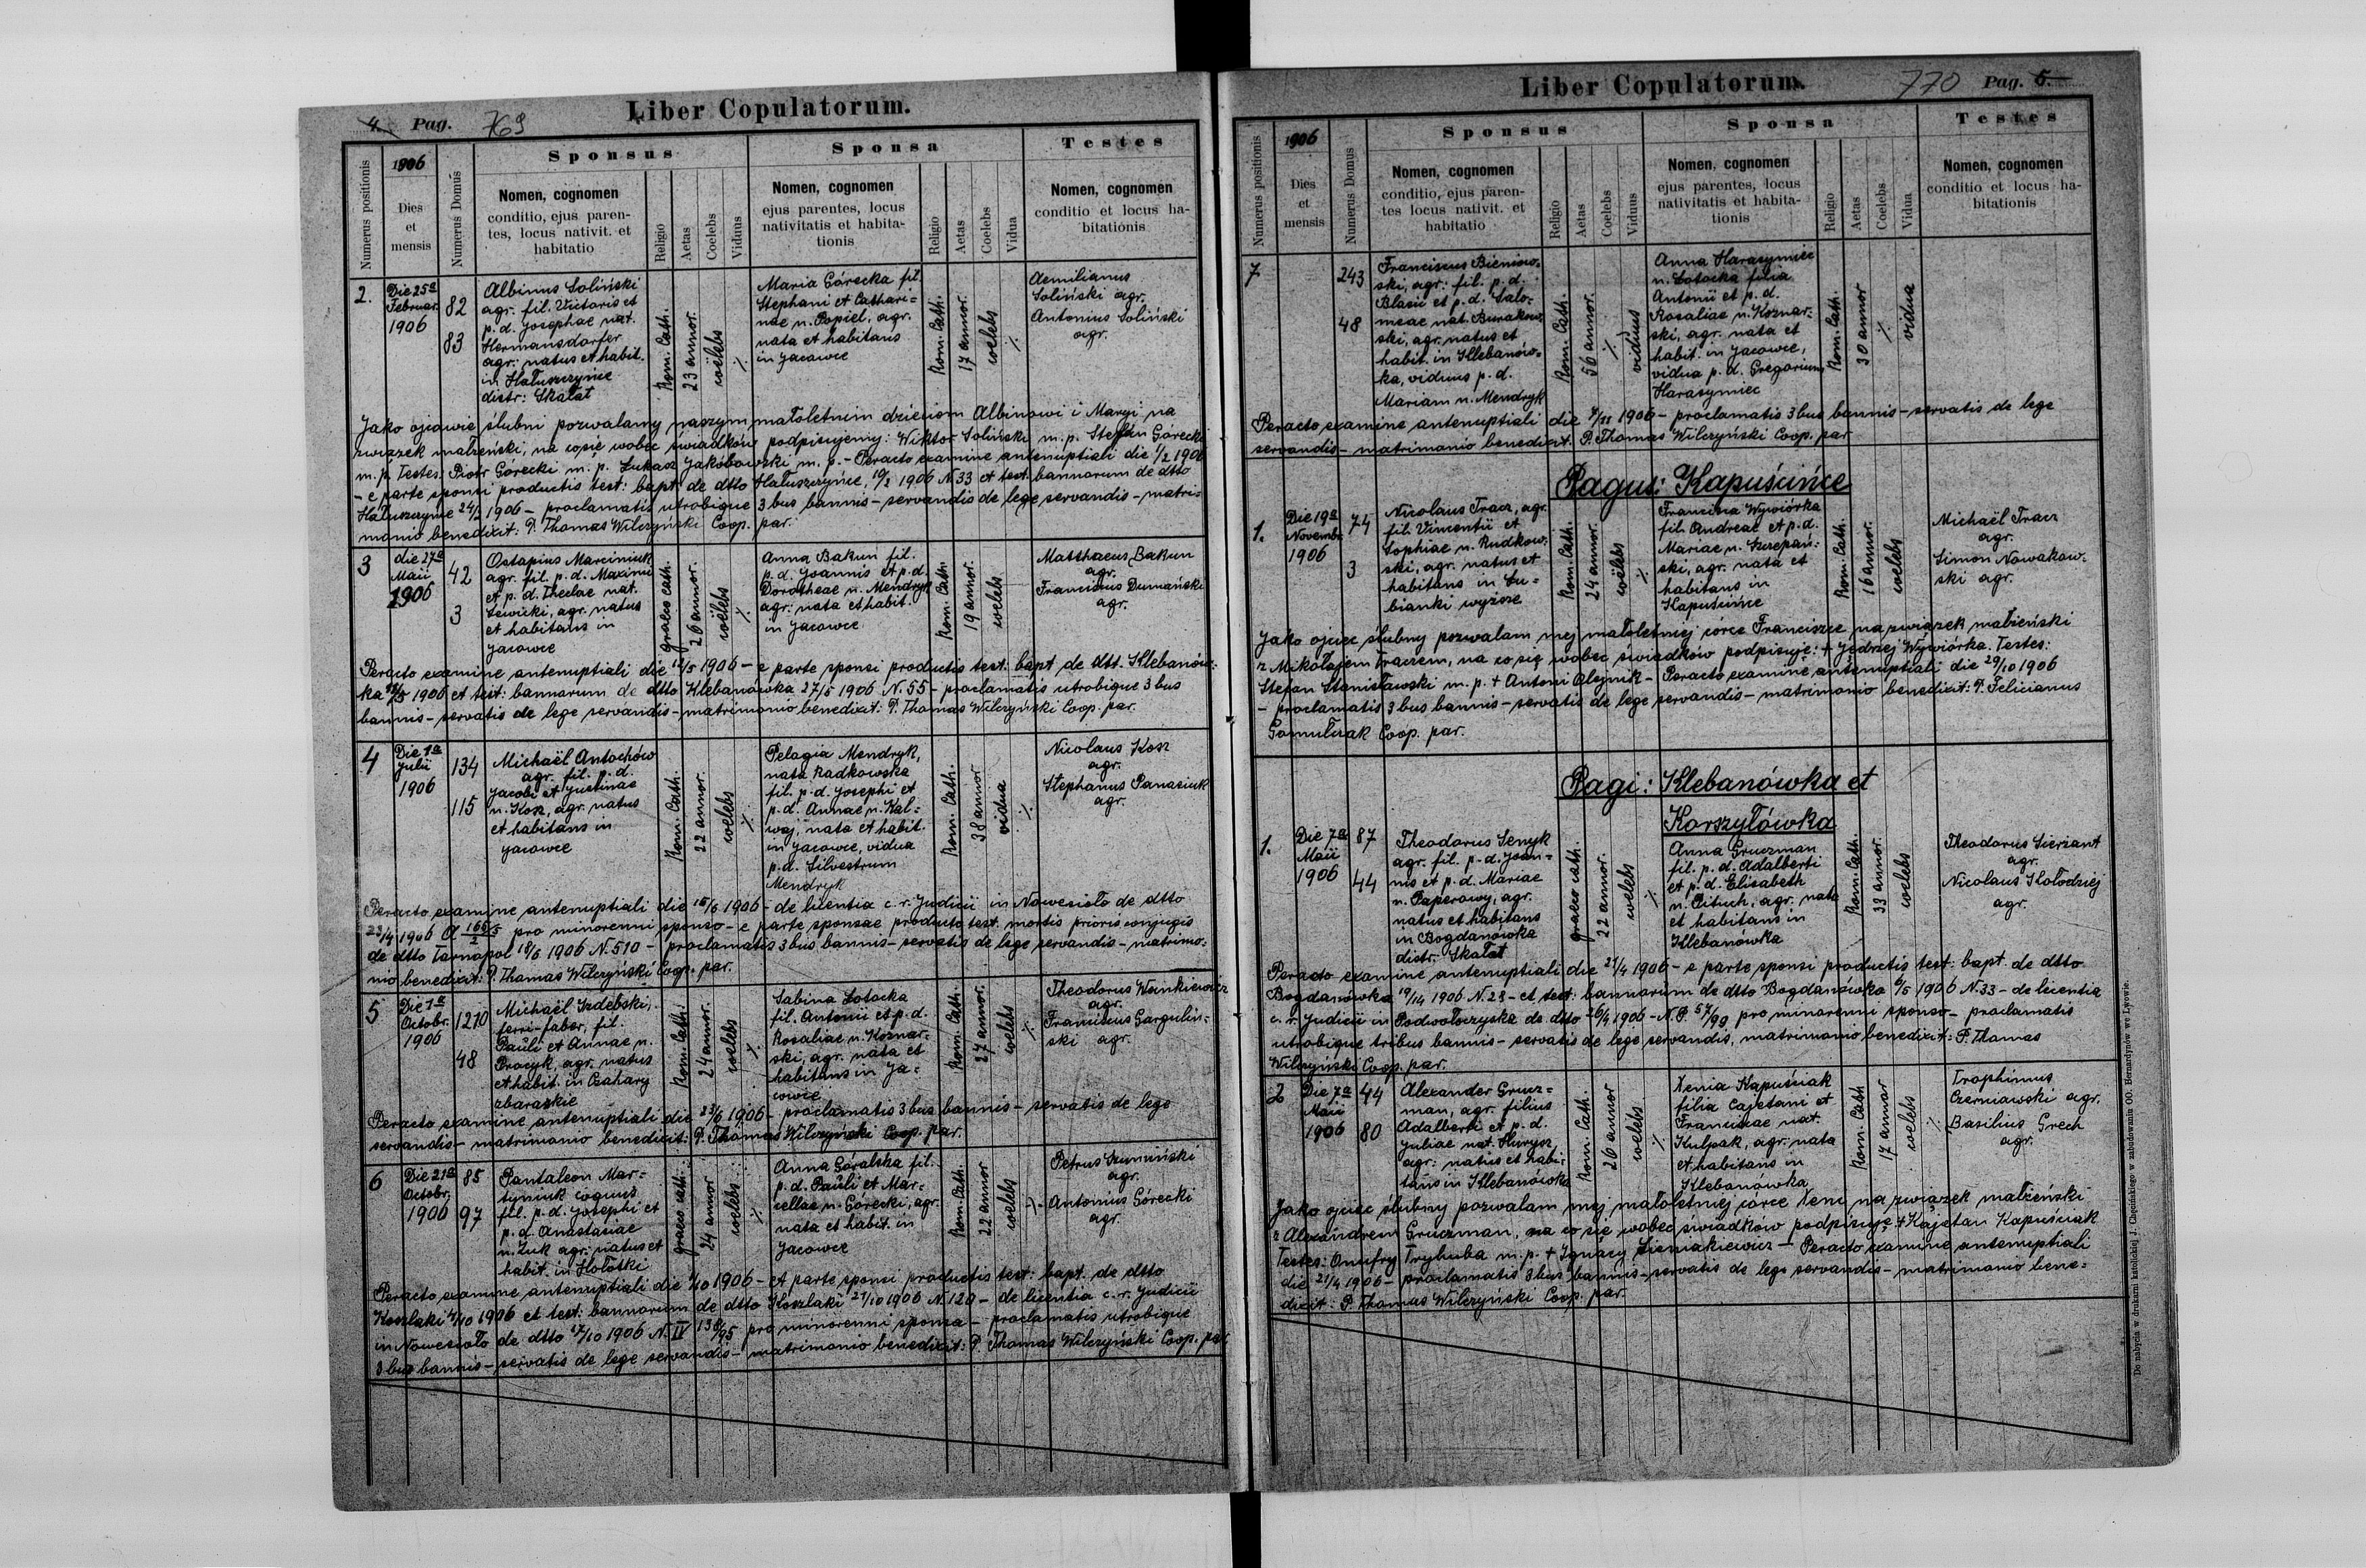 4. Pag. 769
Liber Copulatorum.
Numerus positionis
1906
Dies
et
mensis
Numerus Domus
Sponsus
Nomen, cognomen
conditio, ejus paren-
tes, locus nativit. et
habitatio
Religio
Aetas
Coelebs
Viduus
Sponsa
Nomen, cognomen
ejus parentes, locus
nativitatis et habita-
tionis
Religio
Aetas
Coelebs
Vidua
Testes
Nomen, cognomen
conditio et locus ha-
bitationis
2.
Die 25a
Februar.
1906
82
83
Albinus Soliński
agr. fil. Victoris et
p. d. Josephae nat.
Hermansdorfer
agr: natus et habit.
in Hałuszczyńce
distr: Skałat
Rom. Cath.
23 annor.
coelebs
Maria Górecka fil.
Stephani et Cathari=
nae n. Popiel, agr.
nata et habitans
in Jacowce
Rom. Cath.
17 annor.
coelebs
Aemilianus
Soliński agr.
Antonius Soliński
agr.
Jako ojcowie ślubni pozwalamy naszym małoletnim dzieciom Albinowi i Maryi na
związek małżeński, na co się wobec świadków podpisujemy: Wiktor Soliński m. p. Stefan Górecki
m. p. Testes: Piotr Górecki m. p. Łukasz Jakóbowski m. p. - Peracto examine antenuptiali die 1/2 1906
- e parte sponsi productis test: bapt. de dtto Hałuszczyńce, 10/2 1906 N 33 et test. bannorum de dtto
Hałuszczyńce 24/2 1906 - proclamatis utrobique 3 bus bannis - servandis de lege servandis - matri=
monio benedixit: P. Thomas Wilczyński Coop. par.
3
die 27a
Maii
1906
42
3
Ostapius Marciniuk
agr. fil. p. d. Maximi
et p. d. Theclae nat.
Lewicki, agr. natus
et habitans in
Jacowce
graeco cath.
26 annor.
coelebs
Anna Bakun fil.
p. d. Joannis et p. d.
Dorotheae n. Mendryk
agr: nata et habit.
in Jacowce
Rom. Cath.
19 annor.
coelebs
Matthaeus Bakun
agr.
Franciscus Dumański
agr.
Peracto examine antenuptiali die 12/5 1906 - e parte sponsi productis test: bapt. de dtt. Klebanów-
ka 1906 et test: bannorum de dtto Klebanówka 27/5 1906 N. 55 - proclamatis utrobique 3 bus
bannis - servatis de lege servandis - matrimonio benedixit: P. Thomas Wilczyński Coop. par.
4
Die 1a
Julii
1906
134
115
Michaël Antochów
agr. fil. p. d.
Jacobi et Justinae
n. Kosz, agr. natus
et habitans in
Jacowce
Rom. Cath.
22 annor.
coelebs
Pelagia Mendryk,
nata Radkowska
fil. p. d. Josephi et
p. d. Annae n. Kal=
waj, nata et habit.
in Jacowce, vidua
p. d. Silvestrum
Mendryk
Rom. Cath.
38 annor
vidua
Nicolaus Kosz
agr.
Stephanus Panasiuk
agr.
Peracto examine antenuptiali die 1906 - de licentia c. r. Judicii in Nowesioło de dtto
23/4 1906 pro minorenni sponso - e parte sponsae producto test. mortis prioris conjugis
de dtto Tarnopol 1906 N. 510 - proclamatis 3 bus bannis - servatis de lege servandis - matrimo=
nio benedixit: P. Thomas Wilczyński Coop. par.
5
Die 1a
Octobr.
1906
1210
48
Michaël Izdebski,
ferri-faber, fil.
Pauli et Annae n.
Pracyk, agr. natus
et habit. in Czahary
zbaraskie
Rom. Cath.
24 annor.
coelebs
Sabina Łotocka
fil. Antonii et p. d.
Rosaliae n. Koznar-
ski, agr. nata et
habitans in Ja=
cowce
Rom. Cath.
27 annor.
coelebs
Theodorus Wankiewicz
agr.
Franciscus Gargulin=
ski agr.
Peracto examine antenuptiali die 1906 - proclamatis 3 bus bannis - servatis de lege
servandis - matrimonio benedixit: P. Thomas Wilczyński Coop. par.
6
Die 21a
Octobr.
1906
85
97
Pantaleon Mar=
tyniuk coquus
fil. p. d. Josephi et
p. d. Anastasiae
n. Żuk agr: natus et
habit. in Hołotki
graeco cath.
24 annor
coelebs
Anna Góralska fil.
p. d. Pauli et Mar=
cellae n. Górecki, agr.
nata et habit. in
Jacowce
Rom. Cath.
22 annor
coelebs
Petrus Szumiński
agr.
Antonius Górecki
agr.
Peracto examine antenuptiali die 1906 - et parte sponsi productis test: bapt. de dtto
Koszlaki 1906 et test: bannorum de dtto Koszlaki 21/10 1906 N 120 - de licentia c. r. Judicii
in Nowesioło de dtto 17/10 1906 N. IV pro minorenni sponsa - proclamatis utrobique
3 bus bannis - servatis de lege servandis - matrimonio benedixit: P. Thomas Wilczyński Coop. par.
Liber Copulatorum.
770 Pag. 5.
Numerus positionis
1906
Dies
et
mensis
Numerus Domus
Sponsus
Nomen, cognomen
conditio, ejus paren-
tes locus nativit. et
habitatio
Religio
Aetas
Coelebs
Viduus
Sponsa
Nomen, cognomen
ejus parentes, locus
nativitatis et habita-
tionis
Religio
Aetas
Coelebs
Vidua
Testes
Nomen, cognomen
conditio et locus ha-
bitationis
7
243
48
Franciscus Bieniow-
ski, agr: fil. p. d.
Blasii et p. d. Salo=
meae nat. Burakow-
ski, agr. natus et
habit. in Klebanów=
ka, viduus p. d.
Mariam n. Mendryk
Rom. Cath.
56 annor.
viduus
Anna Harasymiec
n. Łotocka filia
Antonii et p. d.
Rosaliae n. Koznar-
ski, agr. nata et
habit. in Jacowce,
vidua p. d. Gregorium
Harasymiec
Rom. Cath.
30 annor
vidua
Peracto examine antenuptiali die 1906 - proclamatis 3 bus bannis - servatis de lege
servandis - matrimonio benedixit: P. Thomas Wilczyński Coop. par
Pagus: Kapuścińce
1.
Die 19a
Novembr.
1906
74
3
Nicolaus Tracz, agr.
fil. Vincentii et
Sophiae n. Rudkow-
ski, agr. natus et
habitans in Łu-
bianki wyższe
Rom. Cath.
24 annor.
coelebs
Francisca Wywiórka
fil. Andreae et p. d.
Mariae n. Szczepań-
ski, agr. nata et
habitans in
Kapuścińce
Rom. Cath.
16 annor.
coelebs
Michaël Tracz
agr.
Simon Nowakow-
ski agr.
Jako ojciec ślubny pozwalam mej małoletniej córce Franciszce na związek małżeński
z Mikołajem Traczem, na co się wobec świadków podpisuję: + Jędrzej Wywiórka. Testes:
Stefan Stanisławski m. p. + Antoni Olejnik - Peracto examine antenuptiali die 29/10 1906
- proclamatis 3 bus bannis - servatis de lege servandis - matrimonio benedixit: P. Felicianus
Gomułczak Coop. par.
Pagi: Klebanówka et
Korszyłówka
1.
Die 7a
Maii
1906
87
44
Theodorus Senyk
agr. fil. p. d. Joan=
nis et p. d. Mariae
n. Paperowy, agr.
natus et habitans
in Bogdanówka
distr. Skałat
graeco cath.
22 annor.
coelebs
Anna Gruczman
fil. p. d. Adalberti
et p. d. Elisabeth
n. Pituch, agr. nata
et habitans in
Klebanówka
Rom. Cath.
33 annor.
coelebs
Theodorus Sierżant
agr.
Nicolaus Kołodziej
agr.
Peracto examine antenuptiali die 21/4 1906 - e parte sponsi productis test: bapt. de dtto
Bogdanówka 19/14 1906 N. 28 - et test: bannorum de dtto Bogdanówka 6/5 1906 N. 33 - de licentia
c. r. Judicii in Podwołoczyska de dtto 26/4 1906 - N. P. 57/99 pro minorenni sponso - proclamatis
utrobique tribus bannis - servatis de lege servandis, matrimonio benedixit: P. Thomas
Wilczyński Coop. par.
2
Die 7a
Maii
1906
44
80
Alexander Grucz=
man, agr. filius
Adalberti et p. d.
Juliae nat. Hurysz,
agr: natus et habi-
tans in Klebanówka
Rom. Cath.
26 annor
coelebs
Xenia Kapuściak
filia Cajetani et
Franciscae nat.
Kulpak, agr. nata
et habitans in
Klebanówka
Rom. Cath
17 annor
coelebs
Trophimus
Czerniawski agr.
Basilius Grech
agr.
Jako ojciec ślubny pozwalam mej małoletniej córce Xeni na związek małżeński
z Alexandrem Gruczman, na co się wobec świadków podpisuję + Kajetan Kapuściak
Testes: Onufry Trybuba m. p. + Ignacy Sieniakiewicz - Peracto examine antenuptiali
die 21/4 1906 - proclamatis 3 bus bannis - servatis de lege servandis - matrimonio bene=
dixit: P. Thomas Wilczyński Coop. par.
Do nabycia w drukarni katolickiej J. Chęcińskiego w zabudowaniu OO. Bernardynów we Lwowie.